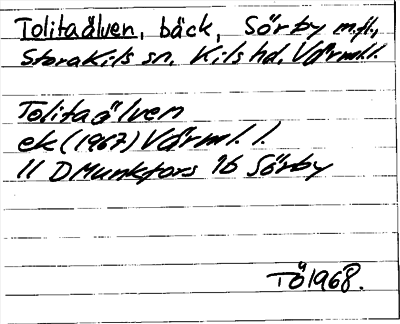 Tolitaälven, bäck, Sörby m.fl.,
Stora Kils sn, Kils hd, Värml.l.
Tolitaälven
ek (1967) Värml. l.
11 D Munkfors 1b Sörby
TÖ 1968.